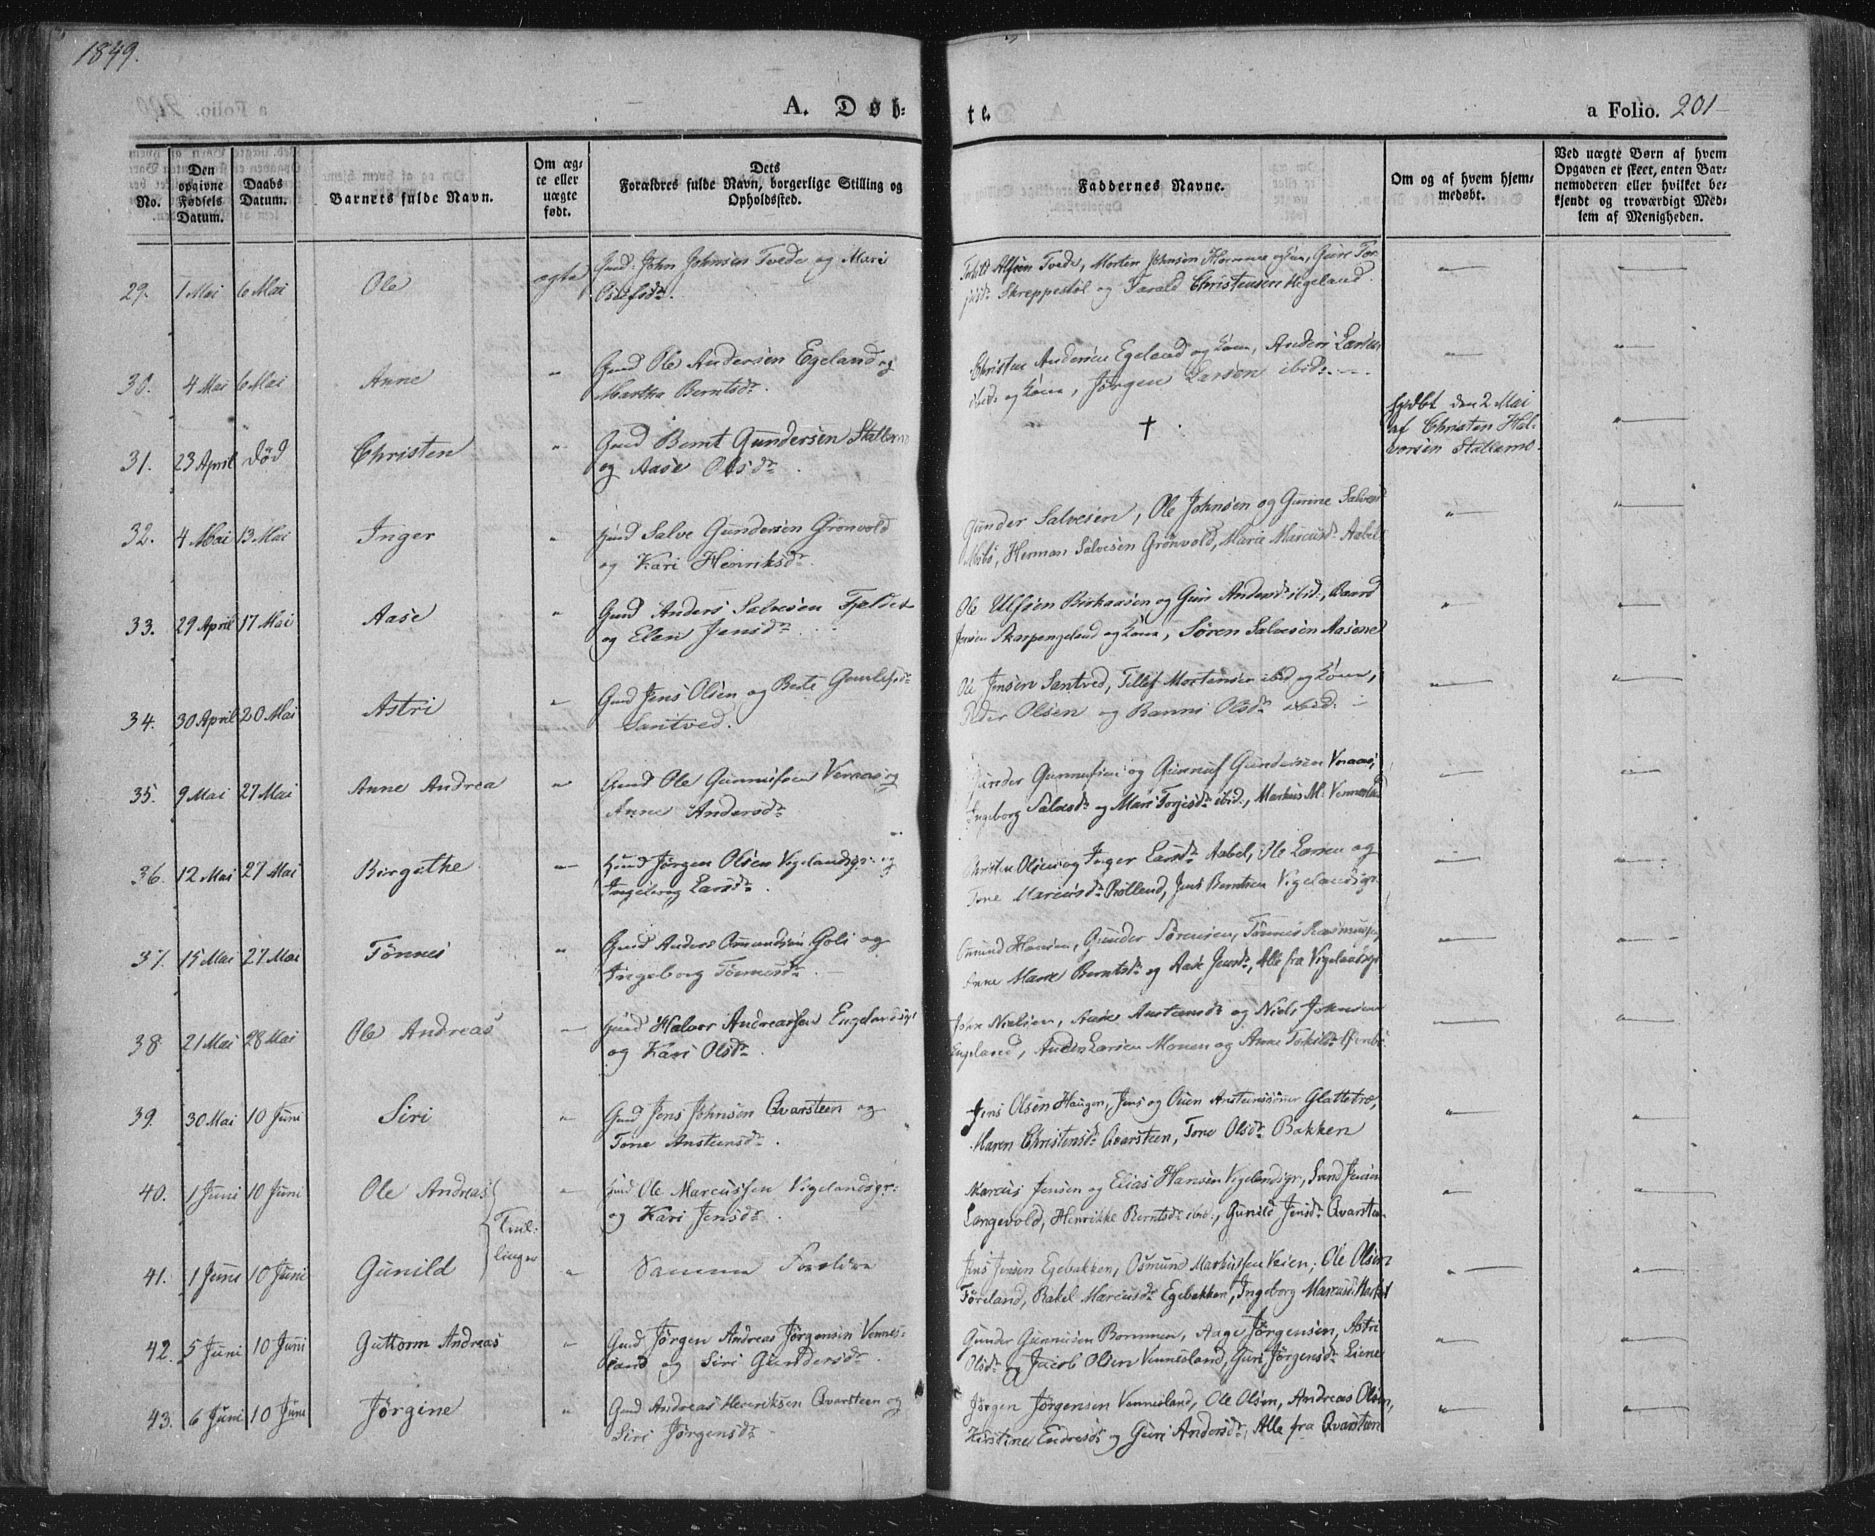 1849.
A. Døb-
te.
a Folio. 201
No.
Den opgivne Fødsels Datum.
Daabs Datum.
Barnets fulde Navn.
Om ægte eller uægte født.
Dets Forældres fulde Navn, borgerlige Stilling og Opholdssted.
Faddernes Navne.
Om og af hvem hjemmedøbt.
Ved uægte Børn af hvem Opgaven er skeet, enten Barnemoderen eller hvilket bekjendt og troværdigt Medlem af Menigheden.
29. 1 Mai 6 Mai Ole ægte Gmd: John Johnsen Tvede og Mari
Alfsen Tvede, Morten Johnsen Homme og Kone, Guri
Skreppestøl og Tarald Christensen Higeland.
30. 4 Mai 6 Mai Anne " Gmd Ole Andersen Egeland og
Martha Berntsdr.
Christen Andersen Egeland og Kone, Anders Larsen
ibid: og Kone, Jørgen Larsen ibid:
31. 23 April død Christen " Gmd Bernt Gundersen Stallemo
og Aase Olsdr.
†
hjdbt den 2 Mai
af Christen Hal-
vorsen Stallemo.
32. 4 Mai 13 Mai Inger " Gmd Salve Gundersen Grønvold
og Kari Henriksdr.
Gunder Salvesen, Ole Johnsen og Gunne
Mosbø, Herman Salvesen Grønvold, Marie Marcusdr Aabel
33. 29 April 17 Mai Aase " Gmd Anders Salvesen Fjeldet
og Elen Jensdr.
Ole Ulfsen Birkaasen og Guri Andersdr ibid, Baard
Jensen Skarpengeland og Kone, Søren Salvesen Aasene
34. 30 April 20 Mai Astri " Gmd Jens Olsen og Berte
Santved.
Ole Jensen Santved, Tellef Mortensen ibid og Kone,
Peder Olsen og Ranni Olsdr ibid.
35. 9 Mai 27 Mai Anne Andrea " Gmd Ole Gunnufsen Veraas og
Anne Andersdr
Gunder Gunnufsen og Gunnuf Gundersen Vraas,
Ingeborg Salvesdr og Mari Torjesdr ibid., Markus M. Vennesland
36. 12 Mai 27 Mai Birgithe " Gmd Jørgen Olsen Vigelandsgr: og
Ingeborg Larsdr.
Olsen og Inger Larsdr Aabel, Ole Larsen og
Tone Marcusdr Rølland, Jens Berntsen Vigelandsgr.
37. 15 Mai 27 Mai Tønnes " Gmd Anders Osmundsen Goli og
Ingeborg Tønnesdr
Osmund Hansen, Gunder Sørensen, Tønnes Rasmussen,
Anne Marie Berntsdr og Aase Jensdr, Alle fra Vigelandsgr
38. 21 Mai 28 Mai Ole Andreas " Gmd Halvor Andreassen Engelandsgr
og Kari Olsdr.
John Nielsen, Aase Anstensdr og Niels Johnsen
Engeland, Anders Larsen Monen og Anne
39. 30 Mai 10 Juni Siri " Gmd Jens Johnsen Qvarsteen og
Tone Anstensdr.
Jens Olsen Haugen, Jens og Ouen Anstensønner Glattetræ,
Maren Christensdr Qvarsteen, Tone Olsdr Bakken
40. 1 Juni 10 Juni Ole Andreas " Gmd Ole Marcussen Vigelandsgr:
og Kari Jensdr.
Tvil-
linger
Marcus Jensen og Elias Hansen Vigelandsgr, Svend Jensen
Langevold, Henrikke Berntsdr ibid., Gunild Jensdr Qvarsteen
41. 1 Juni 10 Juni Gunild " Samme Forældre
Jens Jensen Egebakken, Osmund Markussen Veien, Ole Olsen
Føreland, Rakel Marcusdr Egebakken, Ingeborg Marcusdr
42. 5 Juni 10 Juni Guttorm Andreas " Gmd Jørgen Andreas Jørgensen Vennes-
land og Siri Gundersdr.
Gunder Gunnufsen Bommen, Aage Jørgensen, Astri
Olsdr og Jacob Olsen Vennesland, Guri Jørgensdr Liene
43. 6 Juni 10 Juni Jørgine " Gmd Andreas Henriksen Qvarsteen og
Siri Jørgensdr
Jørgen Jørgensen Vennesland, Ole Olsen, Andreas Olsen,
Kirstine Endresdr og Guri Andersdr, Alle fra Qvarsteen